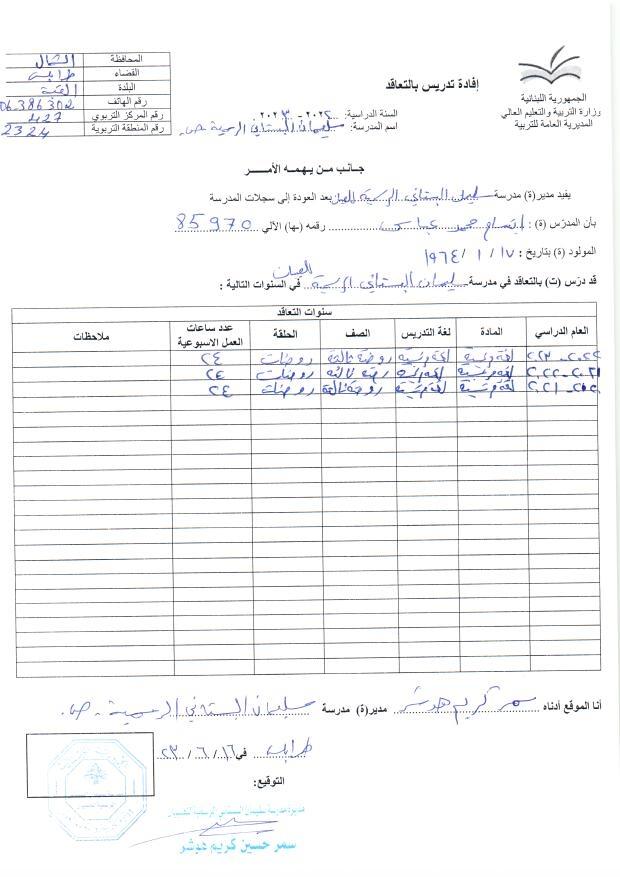 المحافظة الشمال
القضاء طرابلس
البلدة القبة
رقم الهاتف 06.386302
رقم المركز التربوي 427
رقم المنطقة التربوية 2324
الجمهورية اللبنانية
وزارة التربية والتعليم العالي
المديرية العامة للتربية
إفادة تدريس بالتعاقد
السنة الدراسية: ٢٠٢٢ - ٢٠٢٣
اسم المدرسة: سليمان البستاني الرسمية
جانب من يهمه الأمر
يفيد مدير(ة) مدرسة سليمان البستاني الرسمية بعد العودة إلى سجلات المدرسة
بأن المدرّس (ة): رقمه (ها) الآلي 85970
المولود (ة) بتاريخ: ١٧ / ١ / ١٩٦٤
قد درّس (ت) بالتعاقد في مدرسة سليمان البستاني الرسمية في السنوات التالية:
سنوات التعاقد
العام الدراسي المادة لغة التدريس الصف الحلقة عدد ساعات العمل الاسبوعية ملاحظات
٢٠٢٢-٢٠٢٣ لغة فرنسية لغة فرنسية روضة ثالثة روضات ٢٤
٢٠٢١-٢٠٢٢ لغة فرنسية لغة فرنسية روضة ثالثة روضات ٢٤
٢٠٢٠-٢٠٢١ لغة فرنسية لغة فرنسية روضة ثالثة روضات ٢٤
أنا الموقع أدناه سمر كريم هوشر مدير(ة) مدرسة سليمان البستاني الرسمية
طرابلس في ١٦ / ٦ / ٢٣
التوقيع:
مديرة مدرسة سليمان البستاني الرسمية
سمر حسين كريم هوشر